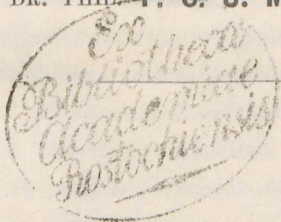 DR. PHIL.
Ex
Bibliotheca
Academiae
Rostochiensis